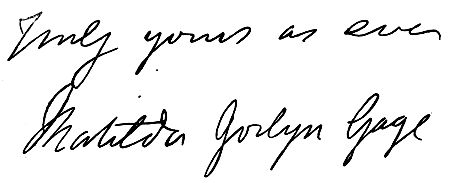 Truly yours as ever
Matilda Joslyn Gage